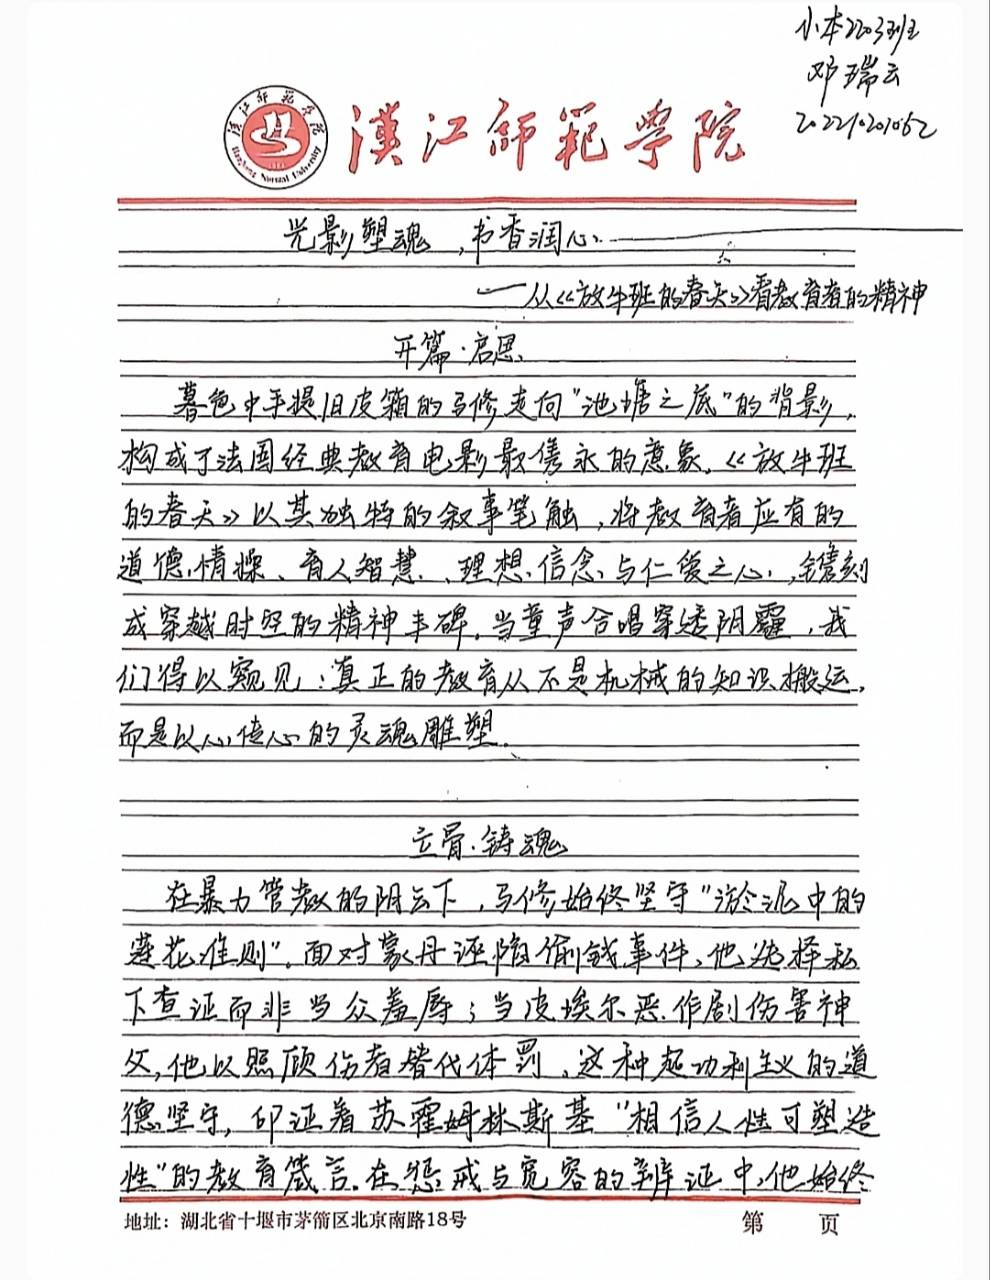 小本2203班
邓瑞云
汉江师范学院
Hanjiang Normal University
漢江師範學院
光影塑魂，书香润心
——从《放牛班的春天》看教育者的精神
开篇·启思
暮色中手提旧皮箱的马修走向"池塘之底"的背影，
构成了法国经典教育电影最隽永的意象。《放牛班
的春天》以其独特的叙事笔触，将教育者应有的
道德情操、育人智慧、理想信念与仁爱之心，镌刻
成穿越时空的精神丰碑。当童声合唱穿透阴霾，我
们得以窥见：真正的教育从不是机械的知识搬运，
而是以心传心的灵魂雕塑。
立骨·铸魂
在暴力管教的阴云下，马修始终坚守"淤泥中的
莲花准则"。面对蒙丹诬陷偷钱事件，他选择私
下查证而非当众羞辱；当皮埃尔恶作剧伤害神
父，他以照顾伤者替代体罚。这种超功利主义的道
德坚守，印证着苏霍姆林斯基"相信人性可塑造
性"的教育箴言。在惩戒与宽容的辨证中，他始终
地址：湖北省十堰市茅箭区北京南路18号
第 页